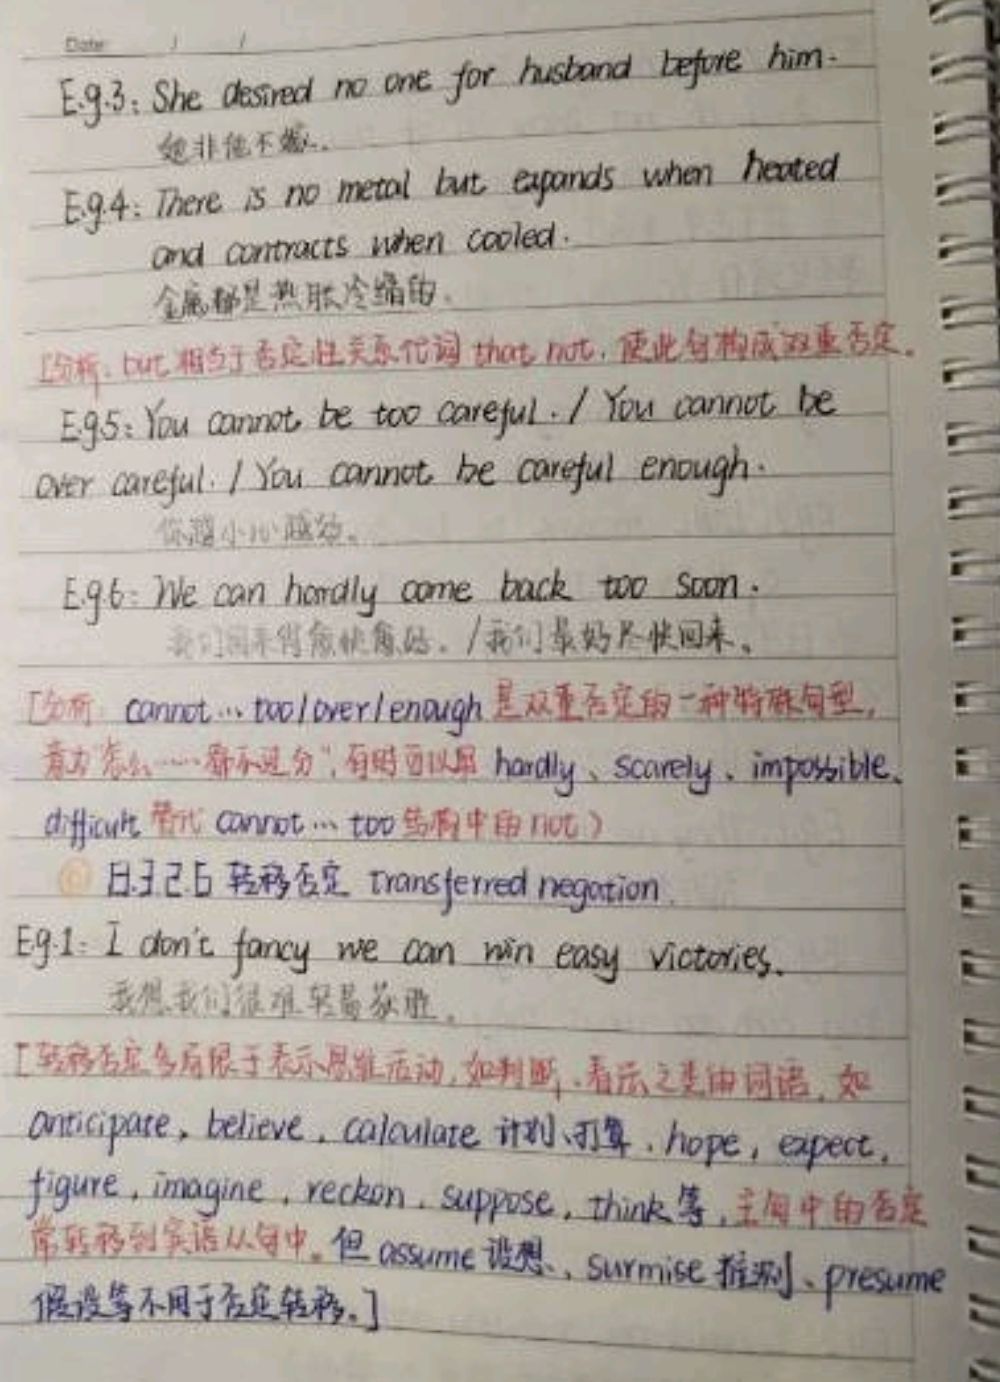 Date / /
E.g.3: She desired no one for husband before him.
她非他不嫁.
E.g.4: There is no metal but expands when heated
and contracts when cooled.
金属都是热胀冷缩的.
[分析: but 相当于否定性关系代词 that not, 使此句构成双重否定。
E.g5: You cannot be too careful. / You cannot be
over careful. / You cannot be careful enough.
你越小心越好。
E.g6: We can hardly come back too soon.
我们回来得愈快愈好。/我们最好尽快回来。
[分析: cannot… too/over/enough 是双重否定的一种特殊句型,
意为"怎么……都不过分", 有时可以用 hardly、scarely、impossible、
difficult 替代 cannot… too 结构中的 not)
⑥ 8.3.2.6 转移否定 transferred negation
E.g.1: I don't fancy we can win easy victories.
我想我们很难轻易获胜.
[转移否定多局限于表示思维活动, 如判断、看法之类的词语, 如
anticipate, believe, calculate 计划、打算, hope, expect,
figure, imagine, reckon, suppose, think 等, 主句中的否定
常转移到宾语从句中。但 assume 设想、surmise 推测、presume
假设等不用于否定转移。]